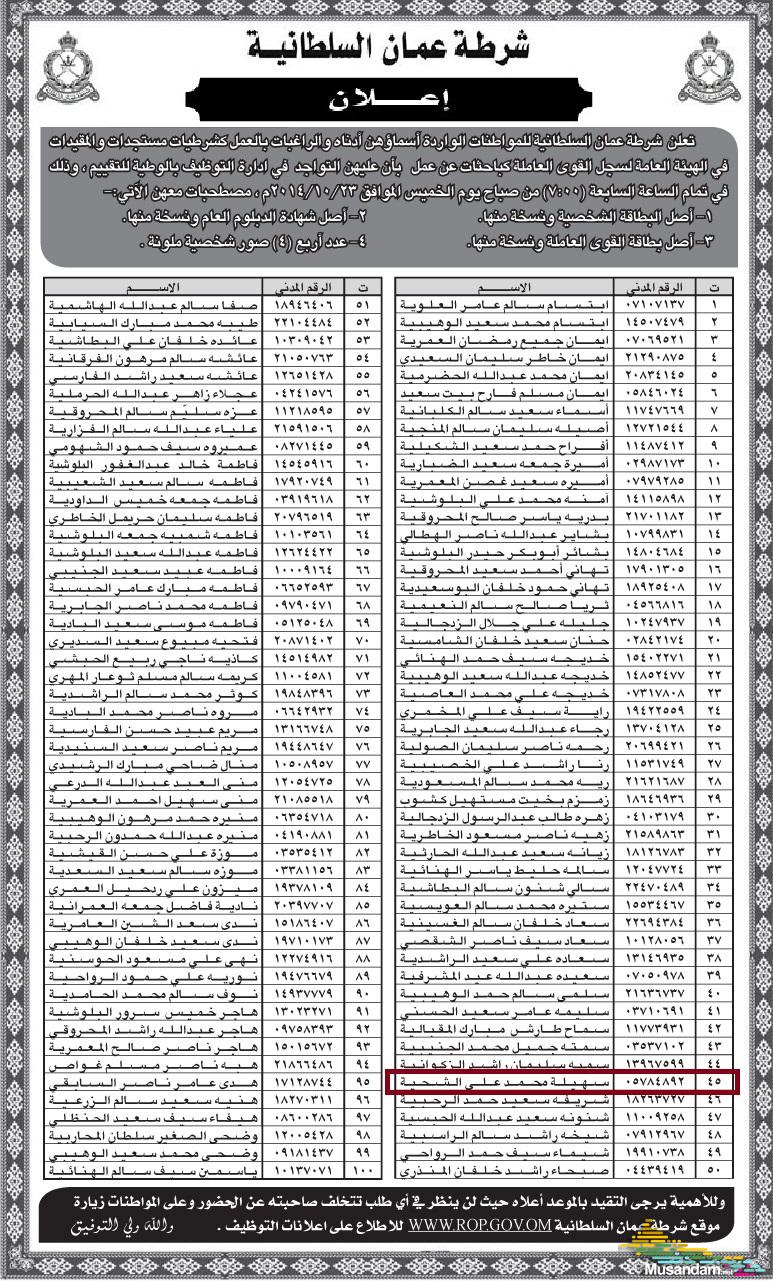 شرطة عمان السلطانية
إعــلان
تعلن شرطة عمان السلطانية للمواطنات الواردة أسماؤهن أدناه والراغبات بالعمل كشرطيات مستجدات والمقيدات
في الهيئة العامة لسجل القوى العاملة كباحثات عن عمل بأن عليهن التواجد في إدارة التوظيف بالوطية للتقييم ، وذلك
في تمام الساعة السابعة (٧:٠٠) من صباح يوم الخميس الموافق ٢٠١٤/١٠/٢٣م ، مصطحبات معهن الآتي:-
١- أصل البطاقة الشخصية ونسخة منها. ٢- أصل شهادة الدبلوم العام ونسخة منها.
٣- أصل بطاقة القوى العاملة ونسخة منها. ٤- عدد أربع (٤) صور شخصية ملونة .
ت الرقم المدني الاســـم
١ ٠٧١٠٧١٣٧ ابتسام سالم عامر العلوية
٢ ١٤٥٠٧٤٧٩ ابتسام محمد سعيد الوهيبية
٣ ٠٧٠٦٩٥٢١ ايمان جميع رمضان العمرية
٤ ٢١٢٩٠٨٧٥ ايمان خاطر سليمان السعيدي
٥ ٢٠٨٣٤١٤٥ ايمان محمد عبدالله الحضرمية
٦ ٠٥٨٤٦٠٢٤ ايمان مسلم فارح بيت سعيد
٧ ١١٧٤٧٦٦٩ أسماء سعيد سالم الكلبانية
٨ ١٢٧٢١٥٤٤ أصيله سليمان سالم المنجية
٩ ١١٤٨٧٤١٢ أفراح حمد سعيد الشكيلية
١٠ ٠٢٩٨٧١٧٣ أميرة جمعه سعيد الضبارية
١١ ٠٧٩٧٩٢٨٥ أميره سعيد غصن المعمرية
١٢ ١٤١١٥٨٩٨ أمنه محمد علي البلوشية
١٣ ٢١٧٠١١٨٢ بدريه ياسر صالح المحروقية
١٤ ١٠٧٩٩٨٣١ بشاير عبدالله ناصر الهطالي
١٥ ١٤٨٠٤٦٨٤ بشائر أبوبكر حيدر البلوشية
١٦ ١٧٩٠١٣٠٥ تهاني أحمد سعيد المحروقية
١٧ ١٨٩٢٥٤٠٨ تهاني حمود خلفان البوسعيدية
١٨ ٠٤٥٦٦٨١٦ ثريا صالح سالم النعيمية
١٩ ١٠٢٤٧٩٣٧ جليله علي جلال الزدجالية
٢٠ ٠٢٨٤٢١٧٤ حنان سعيد خلفان الشامسية
٢١ ١٥٤٠٢٢٧١ خديجه سيف حمد الهنائي
٢٢ ١٤٨٥٢٤٧٧ خديجه عبدالله سعيد الوهيبية
٢٣ ٠٧٣١٧٨٠٨ خديجه علي محمد العاصية
٢٤ ١٩٤٢٢٥٥٩ راية سيف علي المخمري
٢٥ ١٣٧٠٤١٢٨ رجاء عبدالله سعيد الجابرية
٢٦ ٢٠٦٩٩٤٢١ رحمه ناصر سليمان الصولية
٢٧ ١١٥٣١٧٤٩ رنا راشد علي الخصيبية
٢٨ ٢١٦٢١٦٨٧ ريه محمد سالم المسعودية
٢٩ ١٨٦٤٦٩٣٦ زمزم بخيت مستهيل كشوب
٣٠ ٠٤١٠٣١٧٩ زهره طالب عبدالرسول الزدجالية
٣١ ٢١٥٨٩٨٦٣ زهيه ناصر مسعود الخاطرية
٣٢ ١٨١٢٦٧٨٣ زيانه سعيد عبدالله الحارثية
٣٣ ١٢٠٤٧٧٢٤ سالمه حليط ياسر الهنائية
٣٤ ٢٢٤٧٠٤٨٩ سالي شنون سالم البطاشية
٣٥ ١٥٥٣٤٤٦٧ ستيره محمد سالم العويسية
٣٦ ٢٢٦٩٤٣٨٤ سعاد خلفان سالم الغسينية
٣٧ ١٠١٢٨٠٥٦ سعاد سيف ناصر الشقصي
٣٨ ١٣١٤٦٩٣٥ سعاده علي سعيد الراشدية
٣٩ ٠٧٠٥٠٩٧٨ سعيده عبدالله عيد المشرفية
٤٠ ٢١٦٣٦٧٣٧ سلمى سالم حمد الوهيبية
٤١ ٠٣٧١٠٦٩١ سليمه عامر سعيد الحسني
٤٢ ١١٧٧٣٩٣١ سماح طارش مبارك المقبالية
٤٣ ٠٣٥٣٧١٠٢ سمته جميل محمد الجنيبية
٤٤ ١٣٩٦٧٥٩٩ سميه سليمان راشد الزكوانية
٤٥ ٠٥٧٨٤٨٩٢ سهيلة محمد علي الشحية
٤٦ ١٨٢٦٣٧٢٧ شريفه سعيد حمد الرحبية
٤٧ ١١٠٠٩٢٥٨ شنونه سعيد عبدالله الحبسية
٤٨ ٠٧٩١٢٩٦٧ شيخه راشد سالم الراسبية
٤٩ ١٩٩١٠٧٣٨ شيماء سيف حمد الرواحي
٥٠ ٠٤٤٣٩٤١٩ صبحاء راشد خلفان المنذري
ت الرقم المدني الاســـم
٥١ ١٨٩٤٦٤٠٦ صفا سالم عبدالله الهاشمية
٥٢ ٢٢١٠٤٤٨٤ طيبه محمد مبارك السيابية
٥٣ ١٠٣٠٩٠٤٢ عائده خلفان علي البطاشية
٥٤ ٢١٠٥٠٧٦٣ عائشه سالم مرهون الفرقانية
٥٥ ١٢٦٥١٤٢٨ عائشه سعيد راشد الفارسي
٥٦ ٠٤٢٤١٥٧٦ عجلاء زاهر عبدالله الحرملية
٥٧ ١١٢١٨٥٩٥ عزه سليم سالم المحروقية
٥٨ ٢١٥٩١٥٠٦ علياء عبدالله سالم الفزارية
٥٩ ٠٨٢٧١٤٤٥ عميروه سيف حمود الشهومي
٦٠ ١٤٥٤٥٩١٦ فاطمة خالد عبدالغفور البلوشية
٦١ ١٧٩٢٠٧٤٩ فاطمه سالم سعيد الشعيبية
٦٢ ٠٣٩١٩٦١٨ فاطمه جمعه خميس الداودية
٦٣ ٢٠٧٩٦٥١٩ فاطمه سليمان حريمل الخاطري
٦٤ ١٠١٠٣٥٦١ فاطمه شمبيه جمعه البلوشية
٦٥ ١٢٦٢٤٤٢٢ فاطمه عبدالله سعيد البلوشية
٦٦ ١٠٠٠٩١٦٤ فاطمه عبيد سعيد الجنيبي
٦٧ ٠٦٦٥٢٥٩٣ فاطمه مبارك عامر الحبسية
٦٨ ٠٩٧٩٠٤٧١ فاطمه محمد ناصر الجابرية
٦٩ ٠٥١٢٥٠٤٨ فاطمه موسى سعيد البادية
٧٠ ٢٠٨٧١٤٠٢ فتحيه مبيوع سعيد السنديري
٧١ ١٤٥١٤٩٨٢ كاذيه ناجي ربيع الحبشي
٧٢ ١١٠٠٤٥٨١ كريمه سالم مسلم ثوعار المهري
٧٣ ١٩٨٤٨٣٩٦ كوثر محمد سالم الراشدية
٧٤ ٠٦٦٤٢٩٣٢ مروه ناصر محمد البادية
٧٥ ١٣١٦٦٧٤٨ مريم عبيد حسن الفارسية
٧٦ ١٩٤٤٨٦٤٧ مريم ناصر سعيد السنيدية
٧٧ ١٠٥٠٨٩٥٧ منال ضاحي مبارك الرشيدي
٧٨ ١٢٠٥٤٧٢٥ منى العبد عبدالله الدرعي
٧٩ ٢١٠٨٥٥١٨ منى سهيل احمد العمرية
٨٠ ٠٦٣٥٤٧١٨ منيره حمد مرهون الوهيبية
٨١ ٠٤١٩٠٨٨١ منيره عبدالله حمدون الرحبية
٨٢ ٠٣٥٣٥٤١٢ موزة علي حسن القيشية
٨٣ ٠٣٣٨١١٥٦ موزه سالم سعيد السعدية
٨٤ ١٩٣٧٨١٠٩ ميزون علي ردحيل العمري
٨٥ ٢٠٣٩٧٧٠٧ نادية فاضل جمعه العمرانية
٨٦ ١٥١٨٦٤٠٧ ندى سعد الشين العامرية
٨٧ ١٩٧١٠١٧٣ ندى سعيد خلفان الوهيبي
٨٨ ١٢٢٧٤٩١٦ نهى علي مسعود الحوسنية
٨٩ ١٩٤٧٦٦٧٩ نوريه علي حمود الرواحية
٩٠ ١٤٩٣٧٧٧٩ نوف سالم محمد الحامدية
٩١ ١٣٠٢٣٢٧١ هاجر خميس سرور البلوشية
٩٢ ٠٩٧٥٨٣٩٣ هاجر عبدالله راشد المحروقي
٩٣ ١٥٠١٥٦٧٢ هاجر ناصر صالح المعمرية
٩٤ ٢١٨٦٦٤٨٦ هبه ناصر مسلم غواص
٩٥ ١٧١٢٨٧٤٤ هدى عامر ناصر السابقي
٩٦ ١٨٢٧٠٣١١ هنيه سعيد سالم الزرعية
٩٧ ٠٨٦٠٠٢٨٦ هيفاء سيف سعيد الحنظلي
٩٨ ١٢٠٠٥٤٢٨ وضحى الصغير سلطان المحاربية
٩٩ ١٠٢٢٠٤٣٧ وضحى محمد سعيد الوهيبي
١٠٠ ١٠١٣٧٠٧١ ياسمين سيف سالم الهنائية
وللأهمية يرجى التقيد بالموعد أعلاه حيث لن ينظر في أي طلب تتخلف صاحبته عن الحضور وعلى المواطنات زيارة
موقع شرطة عمان السلطانية WWW.ROP.GOV.OM للاطلاع على اعلانات التوظيف . والله ولي التوفيق
Musandam.net